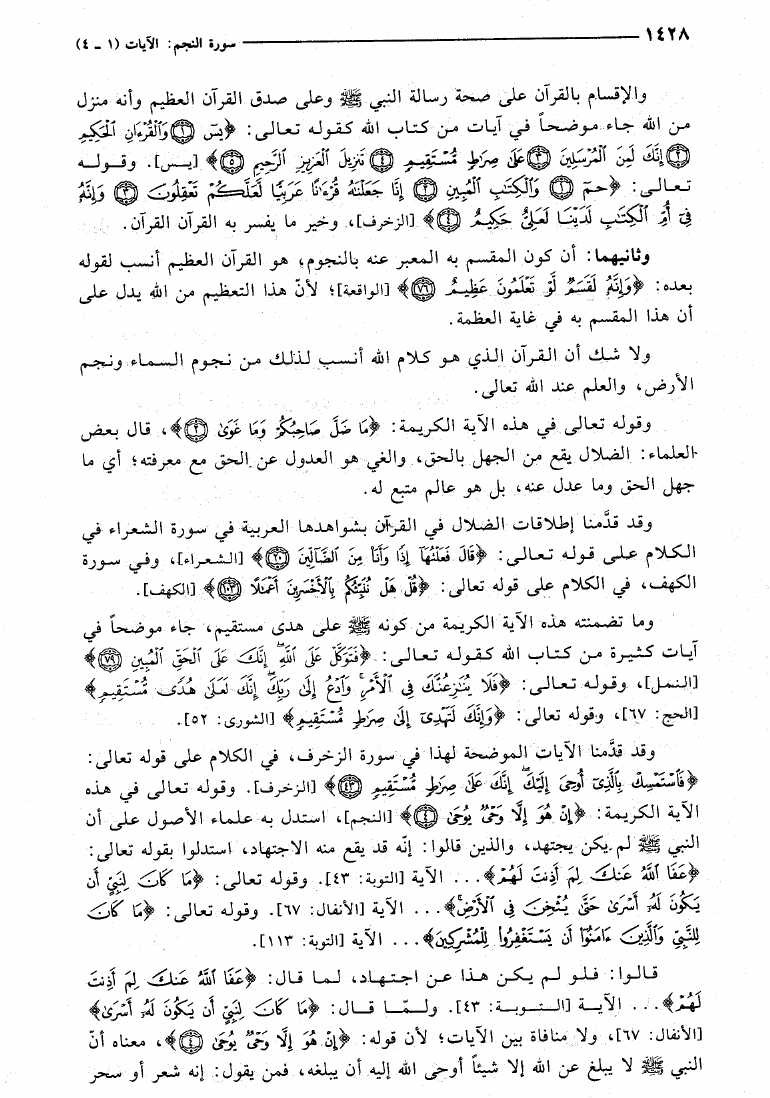 ١٤٢٨ سورة النجم: الآيات (١ ـ ٤)
والإقسام بالقرآن على صحة رسالة النبي ﷺ وعلى صدق القرآن العظيم وأنه منزل
من الله جاء موضحاً في آيات من كتاب الله كقوله تعالى: ﴿يسٓ ۝١ وَٱلْقُرْءَانِ ٱلْحَكِيمِ
۝٢ إِنَّكَ لَمِنَ ٱلْمُرْسَلِينَ ۝٣ عَلَىٰ صِرَٰطٍ مُّسْتَقِيمٍ ۝٤ تَنزِيلَ ٱلْعَزِيزِ ٱلرَّحِيمِ ۝٥﴾ [يس]. وقوله
تعالى: ﴿حمٓ ۝١ وَٱلْكِتَٰبِ ٱلْمُبِينِ ۝٢ إِنَّا جَعَلْنَٰهُ قُرْءَٰنًا عَرَبِيًّا لَّعَلَّكُمْ تَعْقِلُونَ ۝٣ وَإِنَّهُۥ
فِىٓ أُمِّ ٱلْكِتَٰبِ لَدَيْنَا لَعَلِىٌّ حَكِيمٌ ۝٤﴾ [الزخرف]، وخير ما يفسر به القرآن القرآن.
وثانيهما: أن كون المقسم به المعبر عنه بالنجوم، هو القرآن العظيم أنسب لقوله
بعده: ﴿وَإِنَّهُۥ لَقَسَمٌ لَّوْ تَعْلَمُونَ عَظِيمٌ ۝٧٦﴾ [الواقعة]؛ لأنّ هذا التعظيم من الله يدل على
أن هذا المقسم به في غاية العظمة.
ولا شك أن القرآن الذي هو كلام الله أنسب لذلك من نجوم السماء ونجم
الأرض، والعلم عند الله تعالى.
وقوله تعالى في هذه الآية الكريمة: ﴿مَا ضَلَّ صَاحِبُكُمْ وَمَا غَوَىٰ ۝٢﴾، قال بعض
العلماء: الضلال يقع من الجهل بالحق، والغي هو العدول عن الحق مع معرفته؛ أي ما
جهل الحق وما عدل عنه، بل هو عالم متبع له.
وقد قدَّمنا إطلاقات الضلال في القرآن بشواهدها العربية في سورة الشعراء في
الكلام على قوله تعالى: ﴿قَالَ فَعَلْتُهَآ إِذًا وَأَنَا۠ مِنَ ٱلضَّآلِّينَ ۝٢٠﴾ [الشعراء]، وفي سورة
الكهف، في الكلام على قوله تعالى: ﴿قُلْ هَلْ نُنَبِّئُكُم بِٱلْأَخْسَرِينَ أَعْمَٰلًا ۝١٠٣﴾ [الكهف].
وما تضمنته هذه الآية الكريمة من كونه ﷺ على هدى مستقيم، جاء موضحاً في
آيات كثيرة من كتاب الله كقوله تعالى: ﴿فَتَوَكَّلْ عَلَى ٱللَّهِ إِنَّكَ عَلَى ٱلْحَقِّ ٱلْمُبِينِ ۝٧٩﴾
[النمل]، وقوله تعالى: ﴿فَلَا يُنَٰزِعُنَّكَ فِى ٱلْأَمْرِ وَٱدْعُ إِلَىٰ رَبِّكَ إِنَّكَ لَعَلَىٰ هُدًى مُّسْتَقِيمٍ﴾
[الحج: ٦٧]، وقوله تعالى: ﴿وَإِنَّكَ لَتَهْدِىٓ إِلَىٰ صِرَٰطٍ مُّسْتَقِيمٍ﴾ [الشورى: ٥٢].
وقد قدَّمنا الآيات الموضحة لهذا في سورة الزخرف، في الكلام على قوله تعالى:
﴿فَٱسْتَمْسِكْ بِٱلَّذِىٓ أُوحِىَ إِلَيْكَ إِنَّكَ عَلَىٰ صِرَٰطٍ مُّسْتَقِيمٍ ۝٤٣﴾ [الزخرف]. وقوله تعالى في هذه
الآية الكريمة: ﴿إِنْ هُوَ إِلَّا وَحْىٌ يُوحَىٰ ۝٤﴾ [النجم]، استدل به علماء الأصول على أن
النبي ﷺ لم يكن يجتهد، والذين قالوا: إنّه قد يقع منه الاجتهاد، استدلوا بقوله تعالى:
﴿عَفَا ٱللَّهُ عَنكَ لِمَ أَذِنتَ لَهُمْ﴾... الآية [التوبة: ٤٣]. وقوله تعالى: ﴿مَا كَانَ لِنَبِىٍّ أَن
يَكُونَ لَهُۥٓ أَسْرَىٰ حَتَّىٰ يُثْخِنَ فِى ٱلْأَرْضِ﴾... الآية [الأنفال: ٦٧]. وقوله تعالى: ﴿مَا كَانَ
لِلنَّبِىِّ وَٱلَّذِينَ ءَامَنُوٓا۟ أَن يَسْتَغْفِرُوا۟ لِلْمُشْرِكِينَ﴾... الآية [التوبة: ١١٣].
قالوا: فلو لم يكن هذا عن اجتهاد، لما قال: ﴿عَفَا ٱللَّهُ عَنكَ لِمَ أَذِنتَ
لَهُمْ﴾... الآية [التوبة: ٤٣]. ولمّا قال: ﴿مَا كَانَ لِنَبِىٍّ أَن يَكُونَ لَهُۥٓ أَسْرَىٰ﴾
[الأنفال: ٦٧]، ولا منافاة بين الآيات؛ لأن قوله: ﴿إِنْ هُوَ إِلَّا وَحْىٌ يُوحَىٰ ۝٤﴾، معناه أنّ
النبي ﷺ لا يبلغ عن الله إلا شيئاً أوحى الله إليه أن يبلغه، فمن يقول: إنه شعر أو سحر